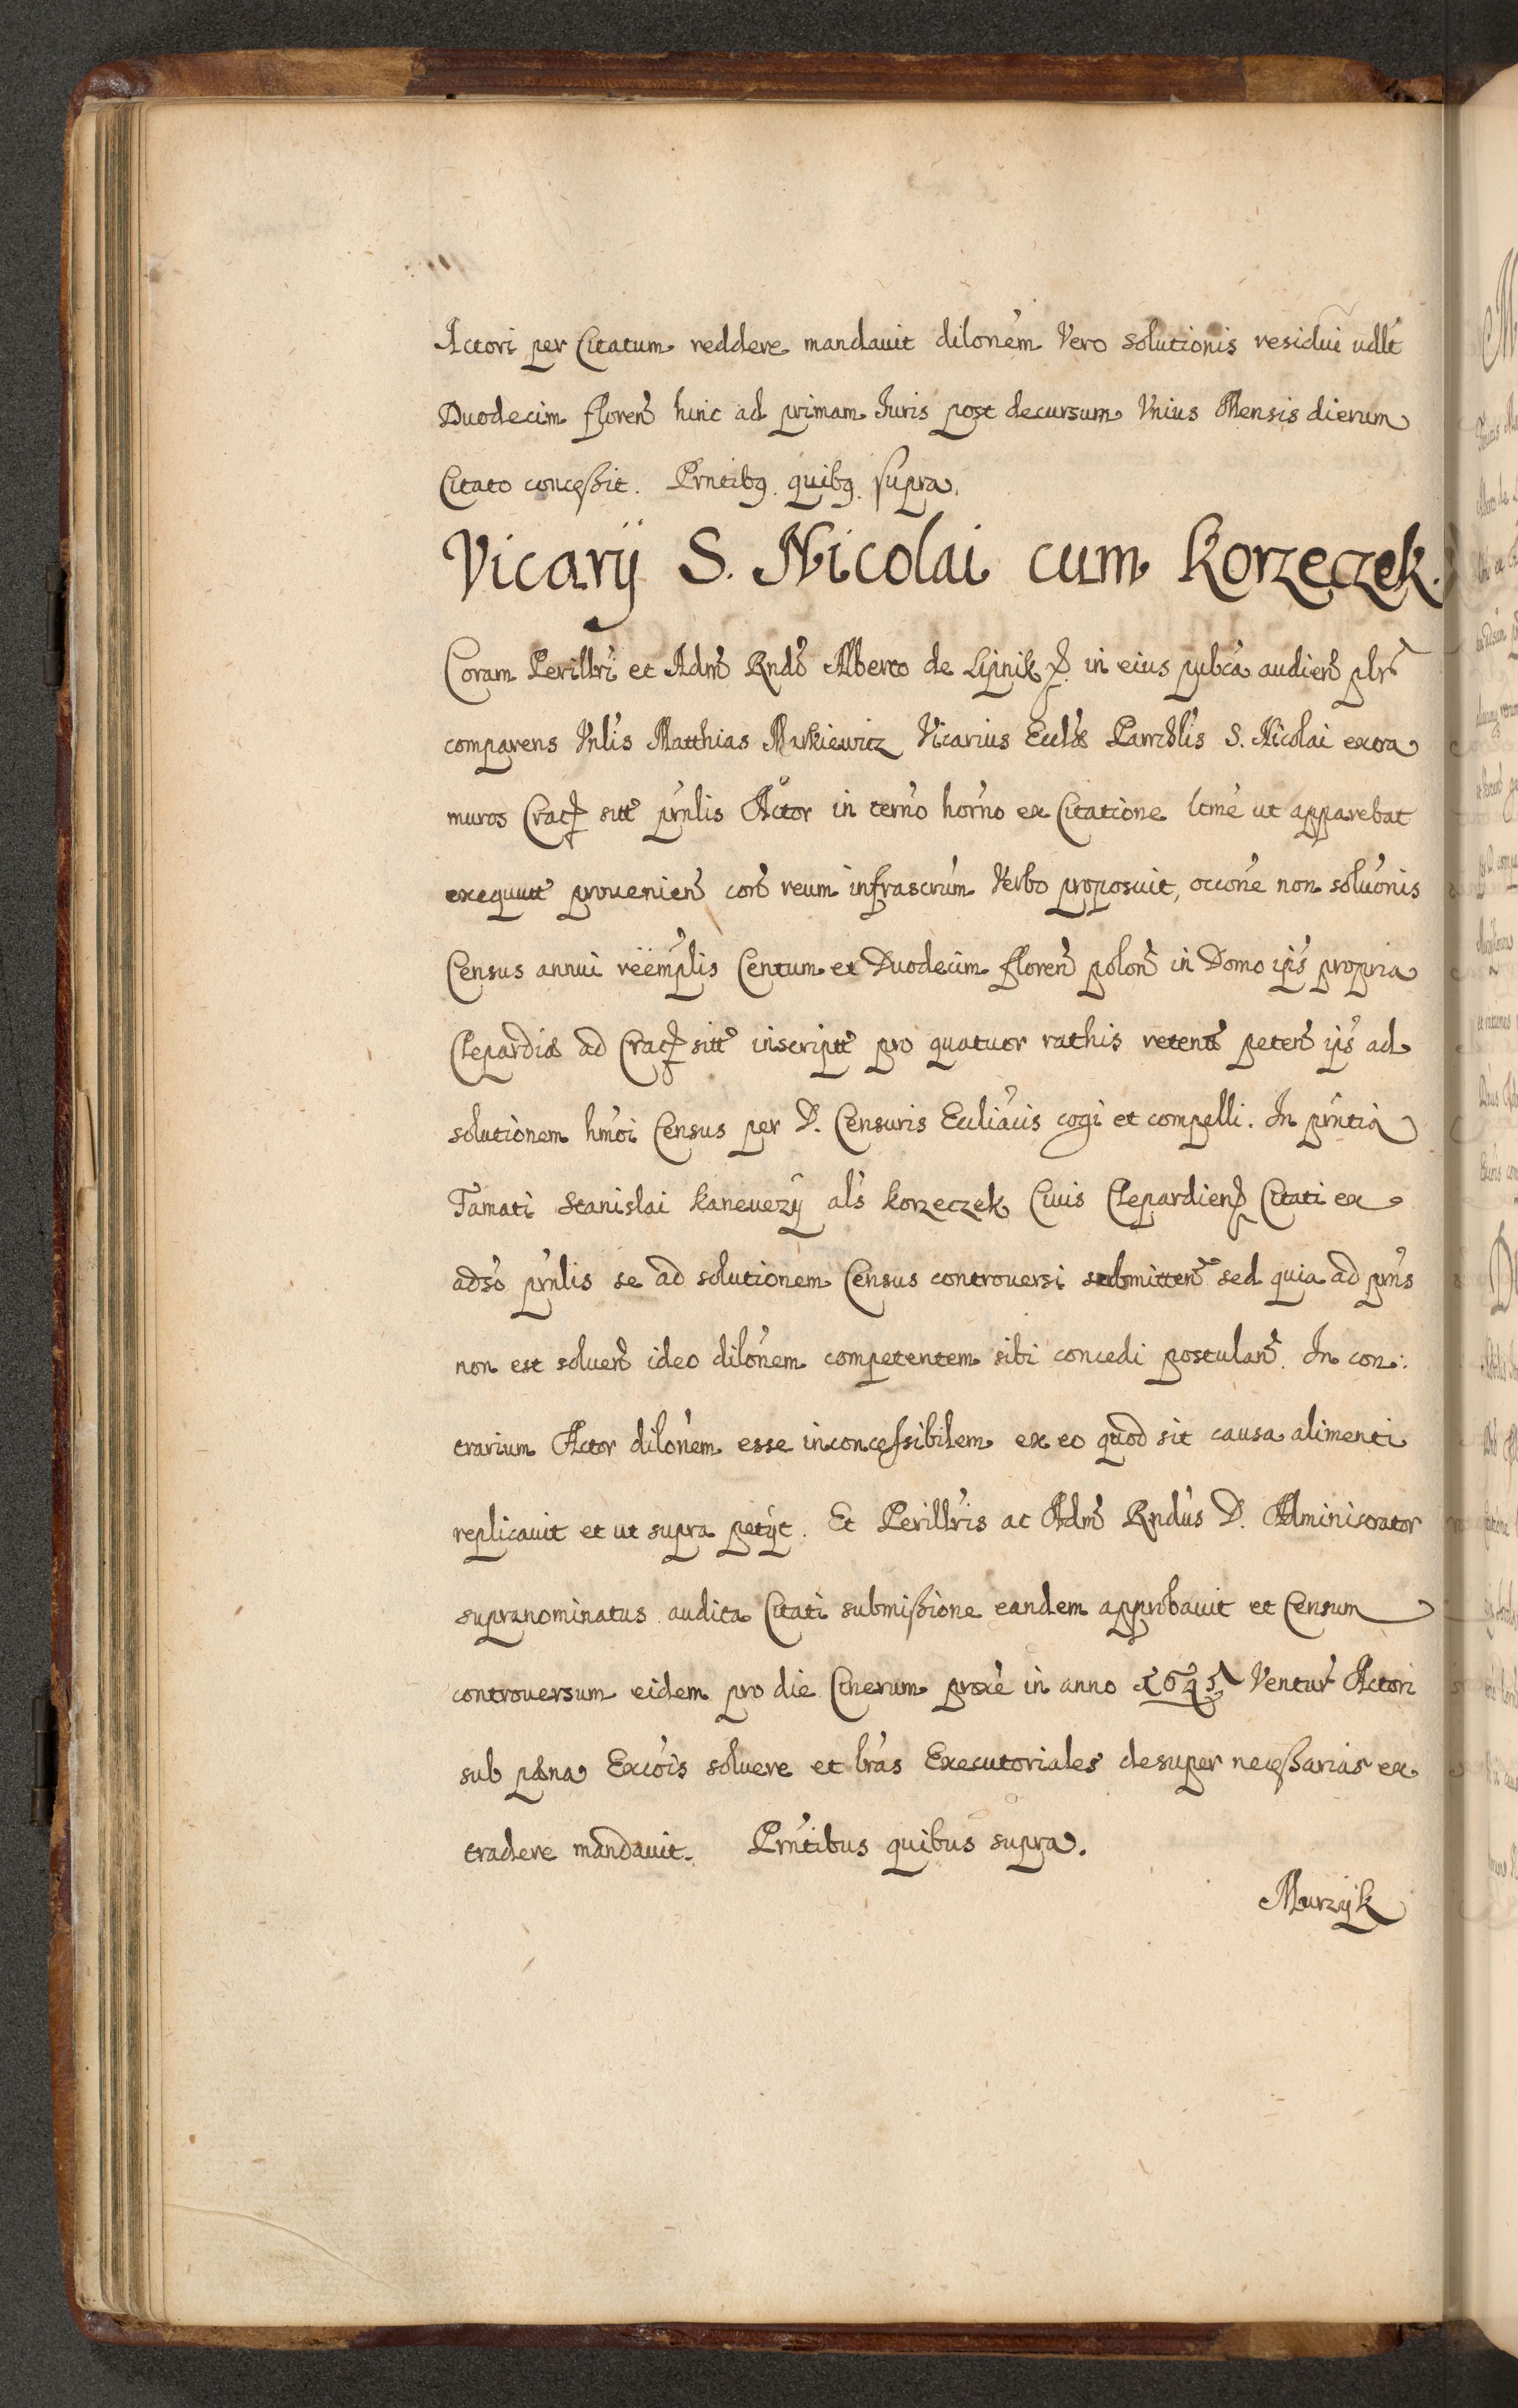 Actori per Citatum reddere mandauit dilonem Vero solutionis residui udlt
Duodecim floren hinc ad primam Iuris post decursum Vnius Mensis dierum
Citato conceßit. Prntibg. quibg. supra.
Vicarij S. Nicolai cum Korzeczek.
Coram Perillri et Adm Rndo Alberto de Lipnik p. in eius pubca audien plr
comparens Vnlis Matthias Markiewicz Vicarius Ecclae Parrchlis S. Nicolai extra
muros Crac sitt prnlis Actor in terno horno ex Citatione ltme ut apparebat
exequutt prouenien cora reum infrascrum Verbo proposuit, occone non soluonis
Census annui reëmplis Centum et Duodecim floren polon in Domo ips propria
Clepardiae ad Crac sitt inscriptt pro quatuor rathis retent peten ips ad
solutionem hmoi Census per D. Censuris Eccliacis cogi et compelli. In prntia
Famati Stanislai Kaneuezij als Korzeczek Ciuis Clepardien Citati ex
adso prnlis se ad solutionem Census controuersi submitten sed quia ad prns
non est soluen ideo dilonem competentem sibi concedi postulan. In con:
trarium Actor dilonem esse inconcessibilem ex eo quod sit causa alimenti
replicauit et ut supra petijt. Et Perillris ac Adm Rndus D. Administrator
supranominatus audita Citati submißione eandem approbauit et Censum
controuersum eidem pro die Cinerum proxe in anno 1645 Ventur Actori
sub paena Excois soluere et lras Executoriales desuper neceßarias ex
tradere mandauit. Prntibus quibus supra.
Murzijk